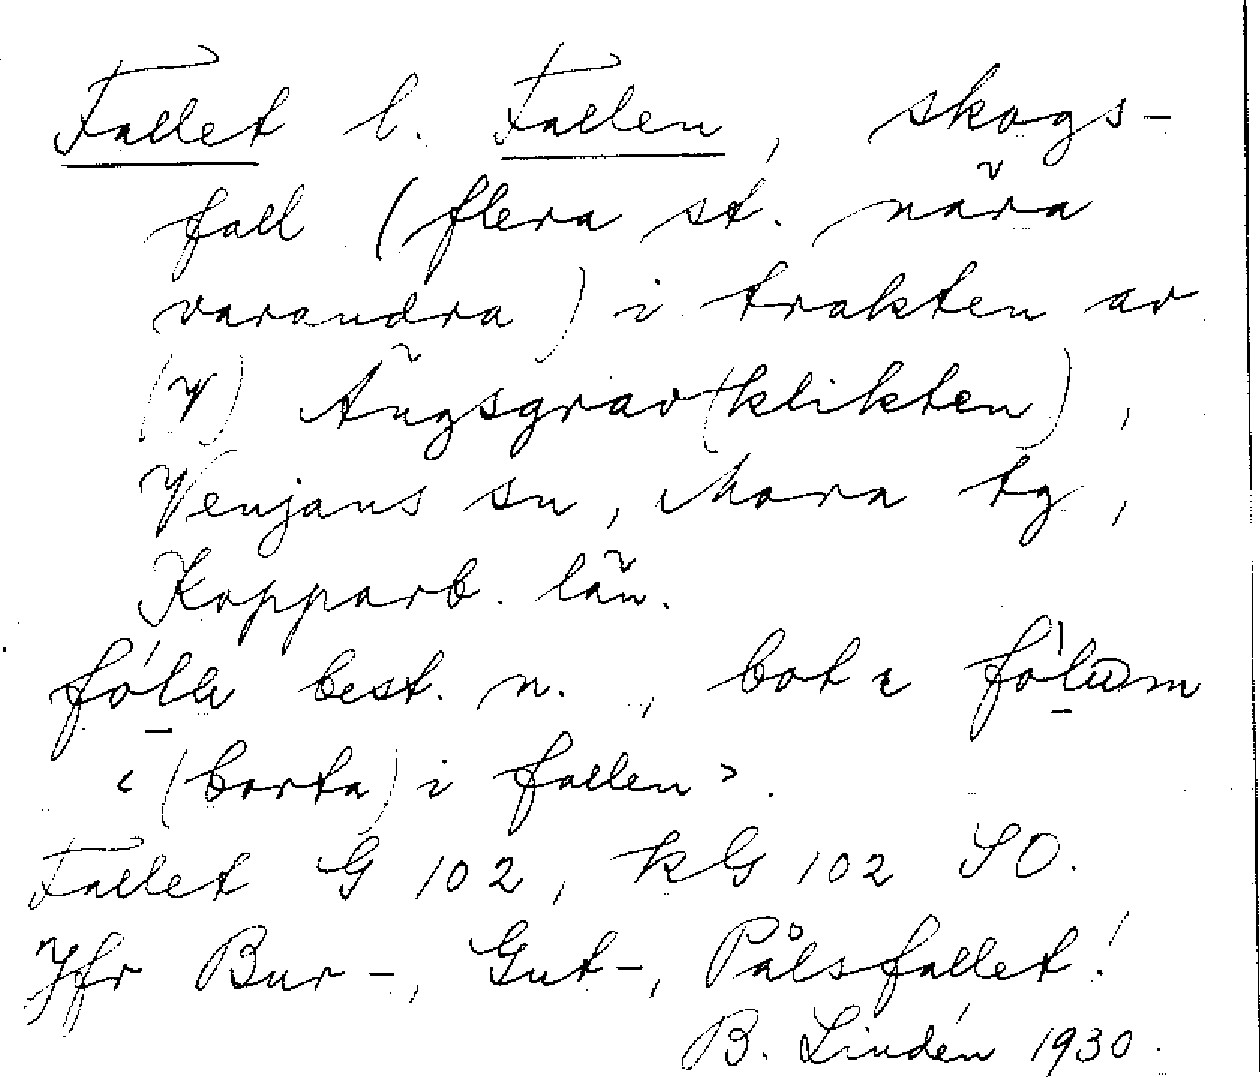 Fallet l. Fallen, skogs-
fall (flera st. nära
varandra) i trakten av
(V) Ängsgrav(klikten),
Venjans sn, Mora tg,
Kopparb. län.
best. n., bot
‹(borta) i fallen›.
Fallet G 102, kG 102 SO.
Jfr Bur-, Gut-, Pålsfallet!
B. Lindén 1930.